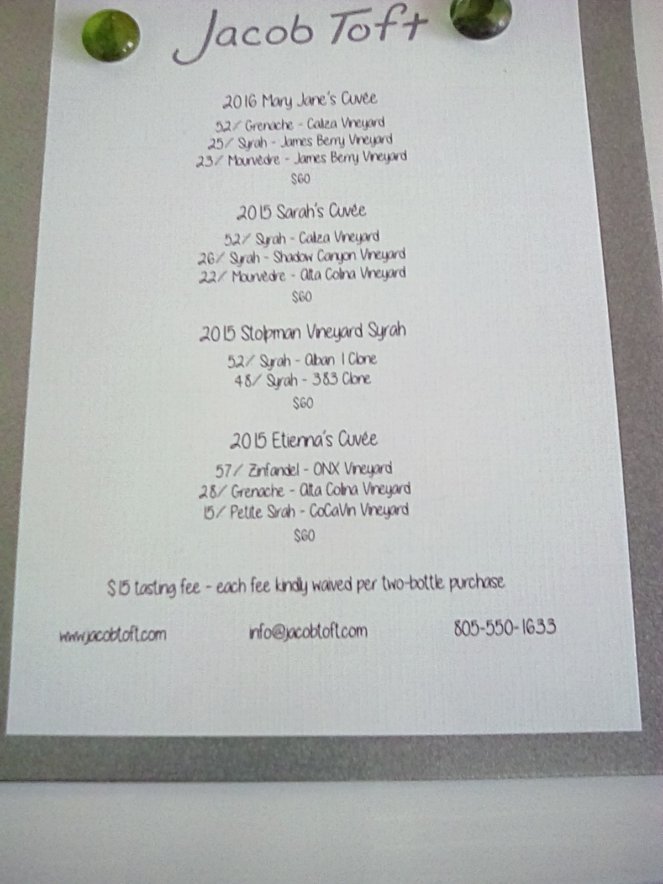 Jacob Toft
2016 Mary Jane's Cuvée
52% Grenache - Caliza Vineyard
25% Syrah - James Berry Vineyard
23% Mourvèdre - James Berry Vineyard
$60
2015 Sarah's Cuvée
52% Syrah - Caliza Vineyard
26% Syrah - Shadow Canyon Vineyard
22% Mourvèdre - Alta Colina Vineyard
$60
2015 Stolpman Vineyard Syrah
52% Syrah - Alban 1 Clone
48% Syrah - 383 Clone
$60
2015 Etienna's Cuvée
57% Zinfandel - ONX Vineyard
28% Grenache - Alta Colina Vineyard
15% Petite Sirah - CoCaVin Vineyard
$60
$15 tasting fee - each fee kindly waived per two-bottle purchase
www.jacobtoft.com info@jacobtoft.com 805-550-1633